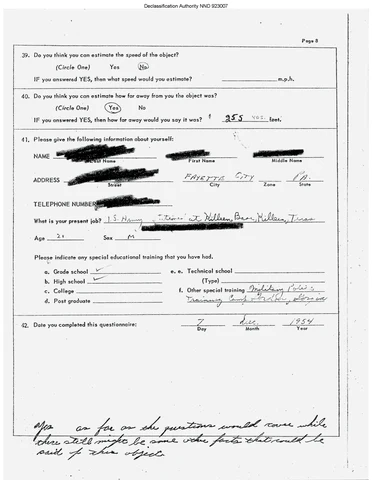 Declassification Authority NND 923007
Page 8
39. Do you think you can estimate the speed of the object?
(Circle One) Yes No
IF you answered YES, then what speed would you estimate? m.p.h.
40. Do you think you can estimate how far away from you the object was?
(Circle One) Yes No
IF you answered YES, then how far away would you say it was? 255 yds. feet.
41. Please give the following information about yourself:
NAME
Last Name First Name Middle Name
ADDRESS FAYETTE CITY PA.
Street City Zone State
TELEPHONE NUMBER
What is your present job? U.S. Army at Killeen Base, Killeen, Texas
Age 20 Sex M
Please indicate any special educational training that you have had.
a. Grade school ✓ e. e. Technical school
b. High school ✓ (Type)
c. College f. Other special training Military Police
d. Post graduate Training Camp Gordon, Georgia
42. Date you completed this questionnaire: 7 Dec. 1954
Day Month Year
as far as the questions would cover while
there still might be some other facts that could be
said of this object.